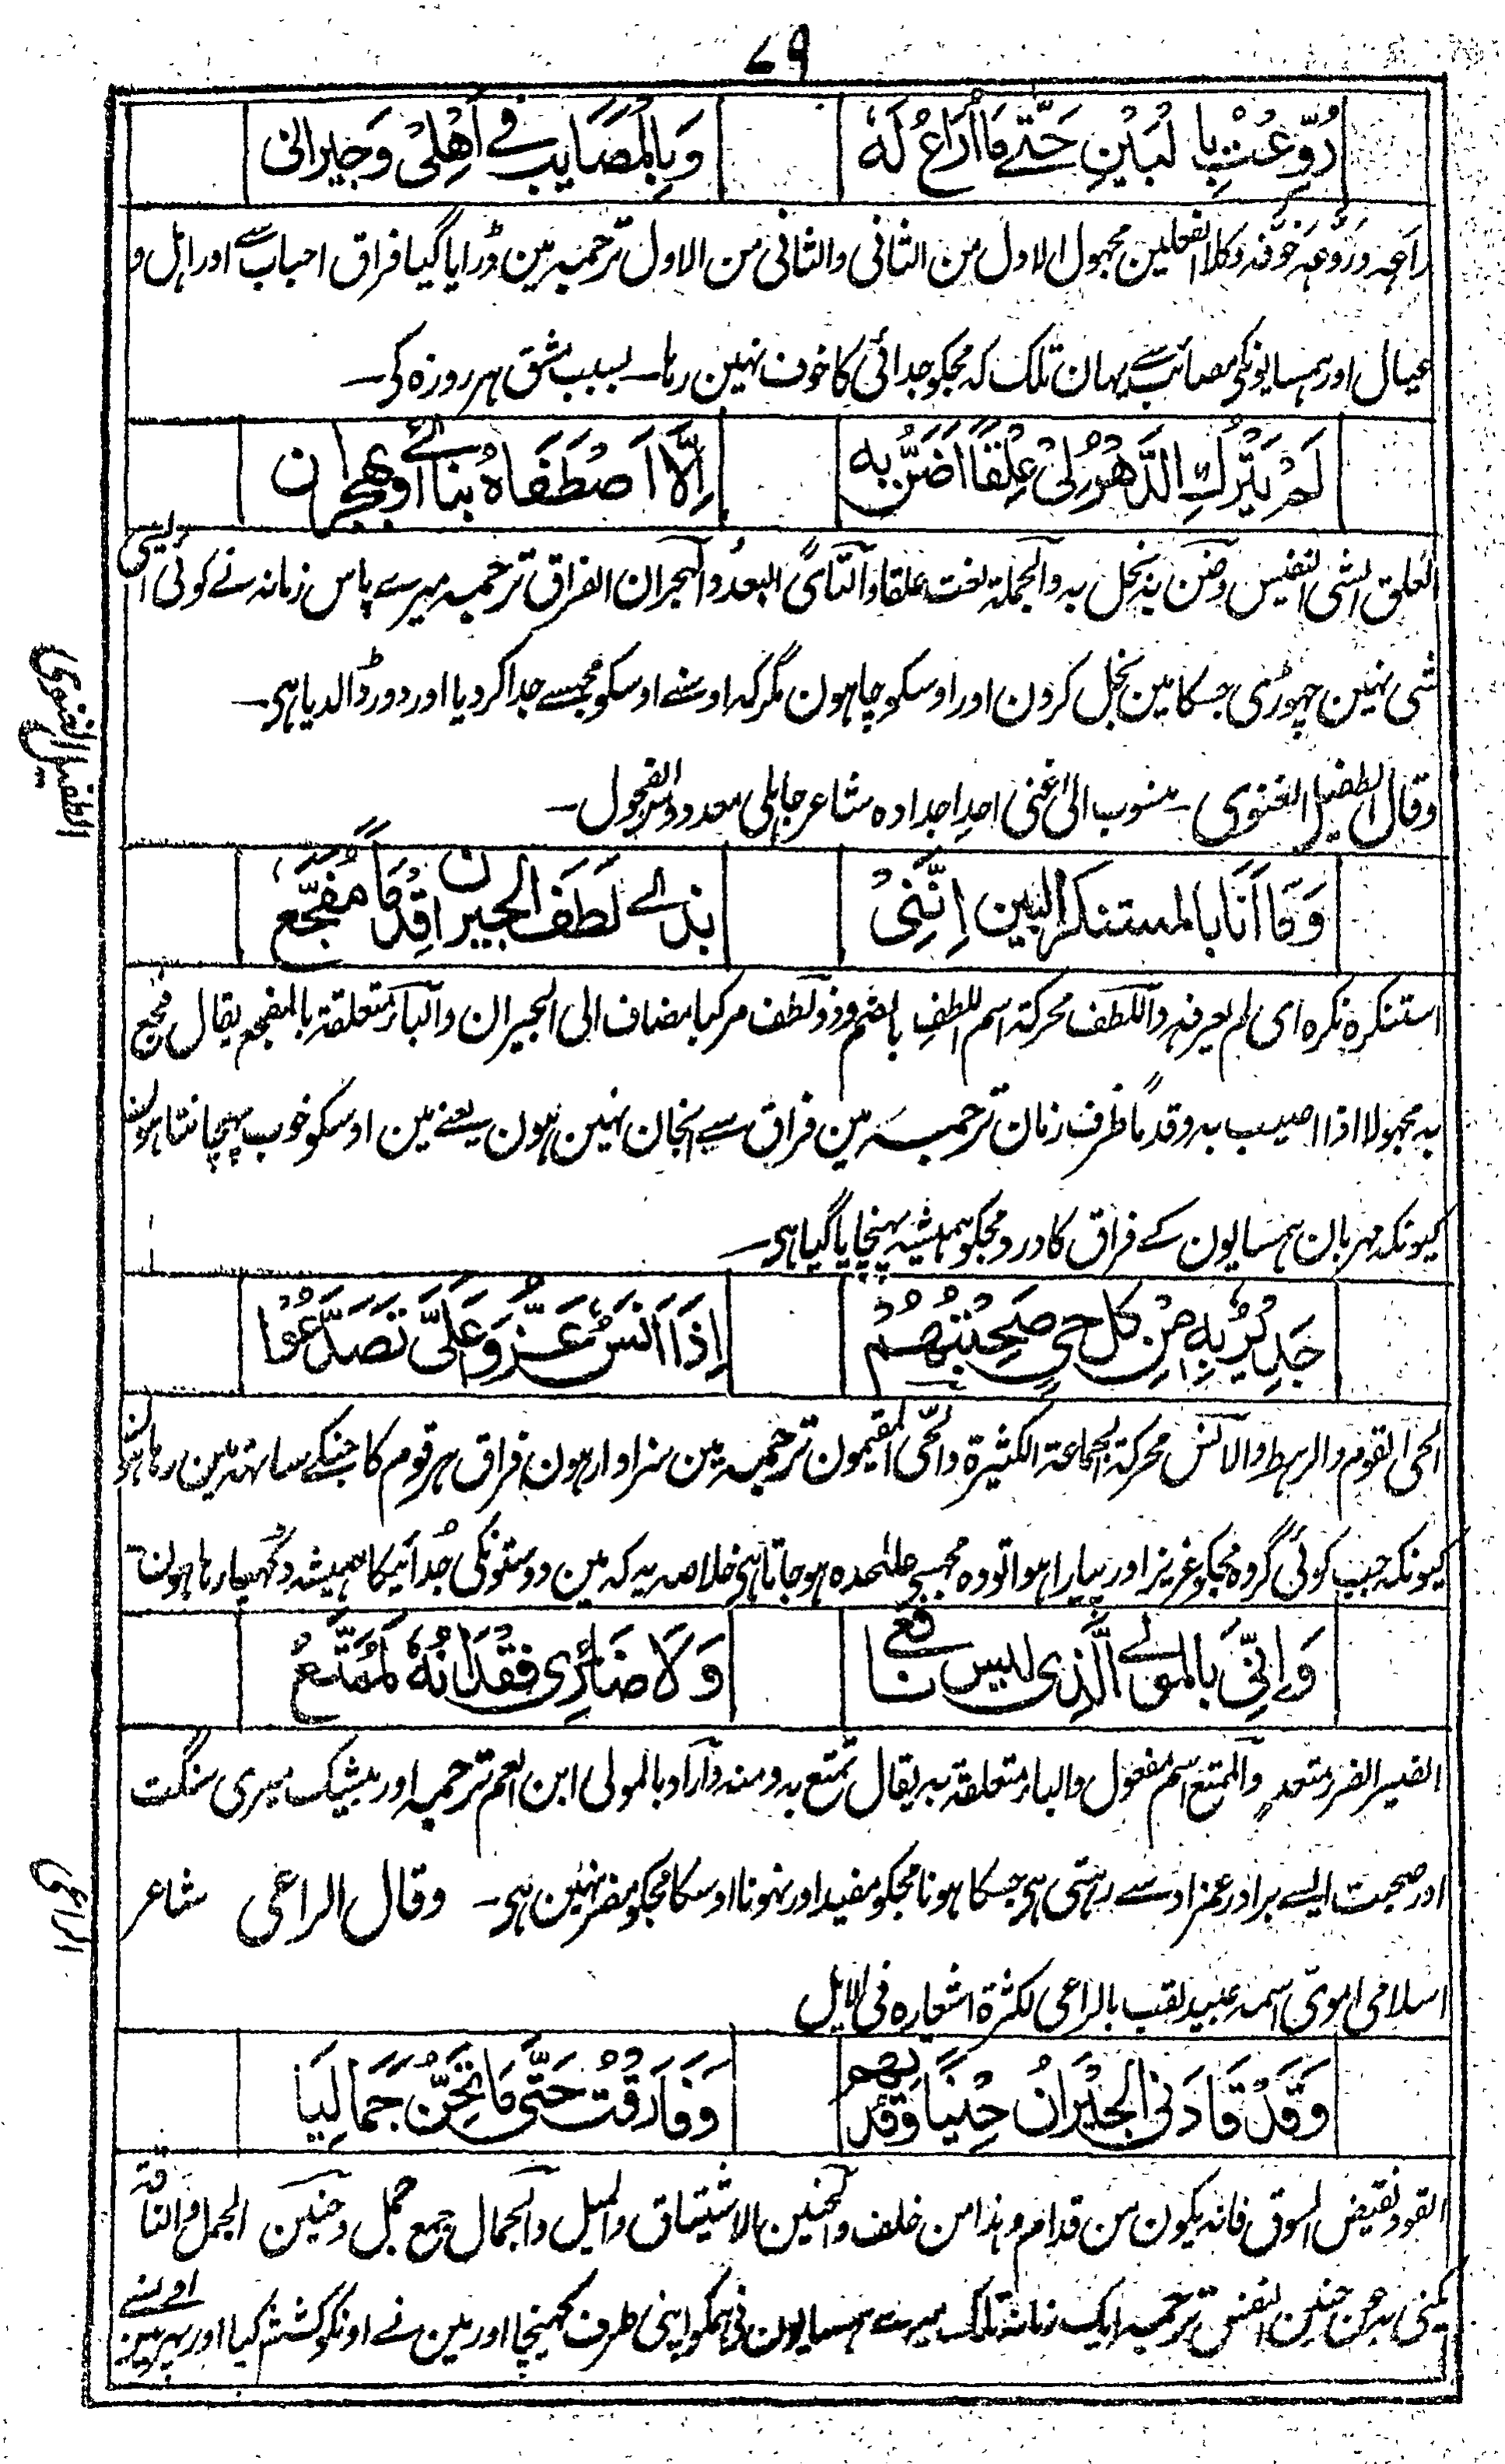 ۷۹
رُوِّعْتُ بِالْبَيْنِ حَتّٰى مَا اُرَاعُ لَهٗ وَبِالْمَصَايِبِ فِى اَهْلِىْ وَجِيْرَانِى
راعہ ورَوَّعہ خَوَّفہ وکلا الفعلین مجہول الاول من الثانی والثانی من الاول ترجمہ مین ڈرایا گیا فراق احباب سے اور اہل و
عیال اور ہمسایونکی مصائب سے یہان تلک کہ مجکو جدائی کا خوف نہین رہا۔ بسبب مشق ہر روزہ کی۔
لَمْ يَتْرُكِ الدَّهْرُ لِىْ عِلْقًا اَضَنُّ بِهٖ اِلَّا اصْطَفَاهُ بِنَائٍ اَوْ بِهِجْرَانِ
العلق الشی النفیس وضن بہ بخل بہ والجملۃ نعت علقا والنأی البعد والہجران الفراق ترجمہ میرے پاس زمانہ نے کوئی ایسی
شی نہین چہوڑی جسکا مین بخل کرون اور اوسکو چاہون مگر کہ اوسنے اوسکو مجہسے جدا کر دیا اور دور ڈالدیا ہی۔
وقال الطفیل الغنوی۔ منسوب الی غنی احد اجدادہ شاعر جاہلی معدود من الفحول۔
الطفیل الغنوی
وَمَا اَنَا بِالْمُسْتَنْكِرِ الْبَيْنِ اِنَّنِىْ بِذِىْ لَطَفِ الْجِيْرَانِ قِدْمًا مُفَجَّعُ
استنکرہ نکرہ ای لم یعرفہ واللطف محرکۃ اسم اللطف بالضم وذو لطف مرکبا مضاف الی الجیران والباء متعلقۃ بالمفجع یقال فجع
بہ مجہولا اذا اصیب بہ وقدماً ظرف زمان ترجمہ مین فراق سے انجان نہین ہون یعنے مین اوسکو خوب پہچانتا ہون
کیونکہ مہربان ہمسایون کے فراق کا درد مجکو ہمیشہ پہنچایا گیا ہی۔
جَدِيْرٌ بِهٖ مِنْ كُلِّ حَىٍّ صَحِبْتُهُمْ اِذَا اَنَسٌ عَزُّوْا عَلَىَّ تَصَدَّعُوْا
الحی القوم والرہط والانس محرکۃ الجماعۃ الکثیرۃ والحی المقیمون ترجمہ مین سزاوار ہون فراق ہر قوم کا جنکے ساتہہ مین رہا ہون
کیونکہ جب کوئی گروہ مجکو عزیز اور پیارا ہوا تو وہ مجہسے علٰحدہ ہوجاتا ہی خلاصہ یہ کہ مین دوستونکی جُدائیکا ہمیشہ دکہیا رہا ہون۔
وَاِنِّىْ بِالْمَوْلَى الَّذِىْ لَيْسَ نَافِعِىْ وَلَا ضَائِرِىْ فِقْدَانُهٗ لَمُمَتَّعُ
الضیر الضر متعدٍ والممتع اسم مفعول والباء متعلقۃ بہ یقال تمتع بہ ومنہ وآراد بالمولی ابن العم ترجمہ اور بیشک میری سنگت
اور صحبت ایسے برادر عمزاد سے رہتی ہی جسکا ہونا مجکو مفید اور نہونا اوسکا مجکو مضر نہین ہی۔ وقال الراعی شاعر
الراعی
اسلامی اموی اسمہ عبید لقب بالراعی لکثرۃ اشعارہ فی الابل
وَقَدْ قَادَنِى الْجِيْرَانُ حِيْنًا وَقُدْتُهُمْ وَفَارَقْتُ حَتّٰى مَا تَحِنُّ جَمَالِيَا
القود نقیض السوق فانہ یکون من قدام وہذا من خلف والحنین الاشتیاق والمیل والجمال جمع جمل وحنین الجمل والناقۃ
یکنی بہ عن حنین النفس ترجمہ ایک زمانہ تلک میرے ہمسایون نی ہمکو اپنی طرف کہینچا اور مین نے اونکو کشش کیا اور پہر مین اونسے